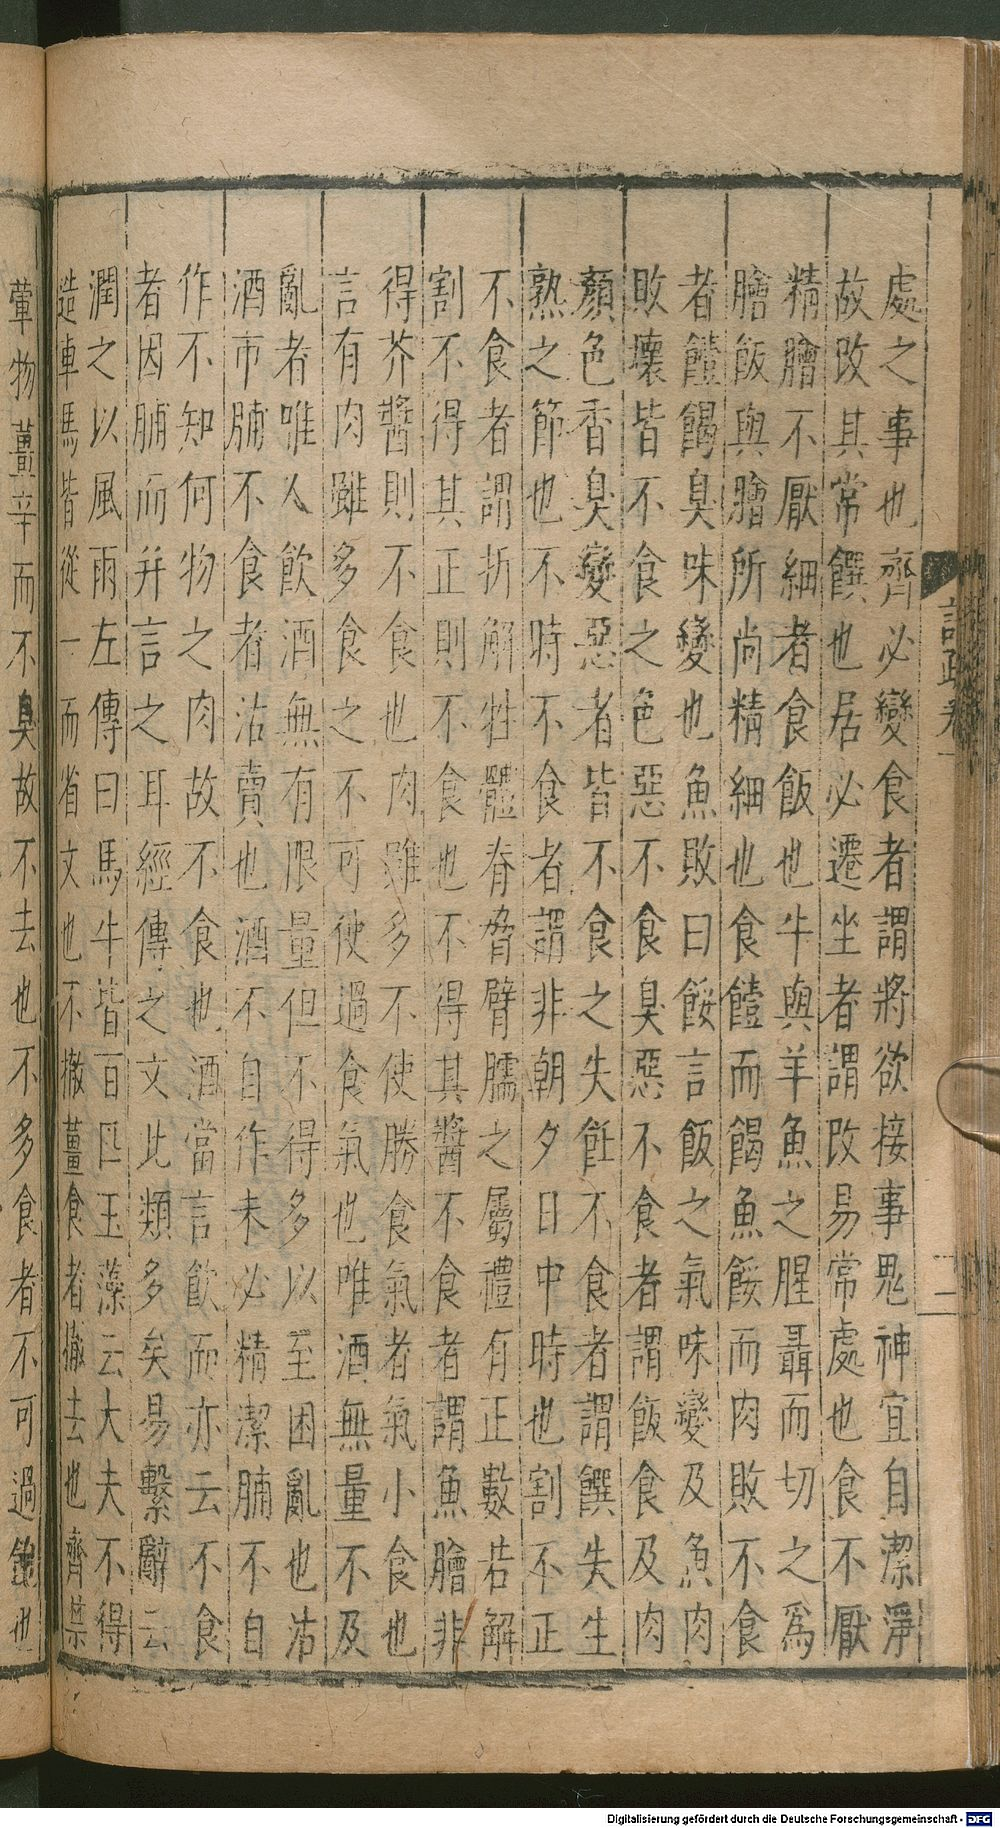 處之事也齊必變食者謂將欲接事鬼神宜自潔淨
故改其常饌也居必遷坐者謂改易常處也食不厭
精膾不厭細者食飯也牛與羊魚之腥聶而切之為
膾飯與膾所尚精細也食饐而餲魚餒而肉敗不食
者饐餲臭味變也魚敗曰餒言飯之氣味變及魚肉
敗壞皆不食之色惡不食臭惡不食者謂飯食及肉
顏色香臭變惡者皆不食之失飪不食者謂饌失生
熟之節也不時不食者謂非朝夕日中時也割不正
不食者謂折解牲體脊脅臂臑之屬禮有正數若解
割不得其正則不食也不得其醬不食者謂魚膾非
得芥醬則不食也肉雖多不使勝食氣者氣小食也
言有肉雖多食之不可使過食氣也唯酒無量不及
亂者唯人飲酒無有限量但不得多以至困亂也沽
酒市脯不食者沽賣也酒不自作未必精潔脯不自
作不知何物之肉故不食也酒當言飲而亦云不食
者因脯而并言之耳經傳之文此類多矣易繫辭云
潤之以風雨左傳曰馬牛皆百匹玉藻云大夫不得
造車馬皆從一而省文也不撤薑食者撤去也齊禁
葷物薑辛而不臭故不去也不多食者不可過飽也
語疏卷
二
Digitalisierung gefördert durch die Deutsche Forschungsgemeinschaft - DFG